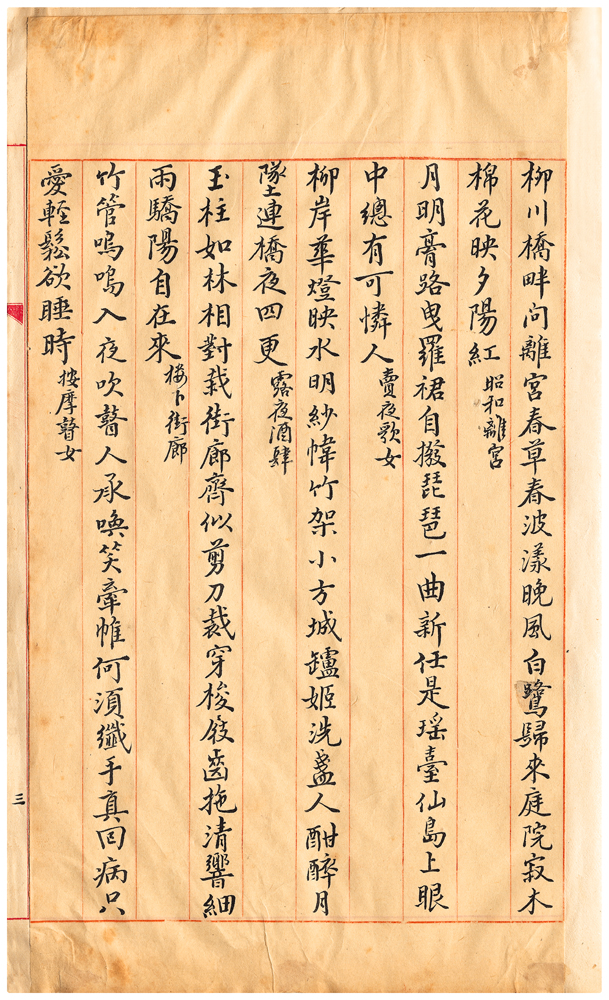 柳川橋畔问離宮春草春波漾晚風白鷺歸來庭院寂木
棉花映夕陽紅昭和離宮
月明膏路曳羅裙自撥琵琶一曲新任是瑶臺仙島上眼
中總有可憐人賣夜歌女
柳岸華燈映水明紗幃竹架小方城罏姬洗盞人酣醉月
墜連橋夜四更露夜酒肆
玉柱如林相對栽街廊齊似剪刀裁穿梭屐齒拖清響細
雨驕陽自在來樓下街廊
竹管嗚嗚入夜吹瞽人承喚笑牽帷何須纖手真回病只
愛輕鬆欲睡時按摩瞽女
三